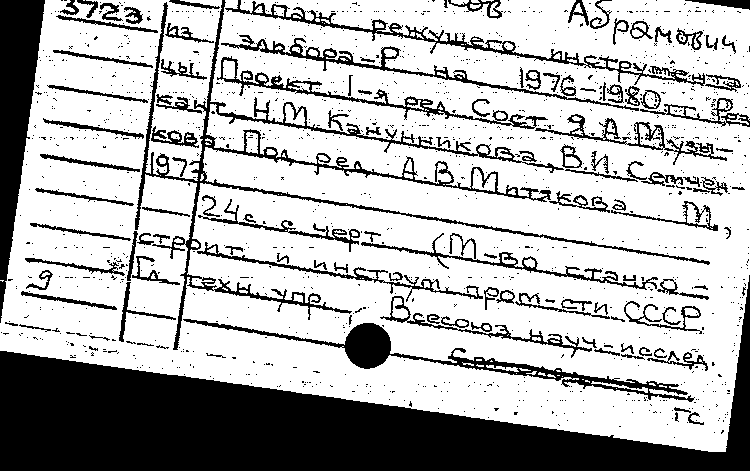 ков Абрамович
3723. Типаж режущего инструмента
из эльбора-Р на 1976-1980 гг. Рез
цы. Проект. 1-я ред. Сост. Я.А.Музы-
кант, Н.М.Канунникова, В.И.Семчен-
кова. Под ред. А.В.Митякова. М,
1973.
24 с. с черт. (М-во станко-
строит. и инструм. пром-сти СССР
Гл. техн. упр. Всесоюз науч-исслед.
9
См след. карт.
ГС